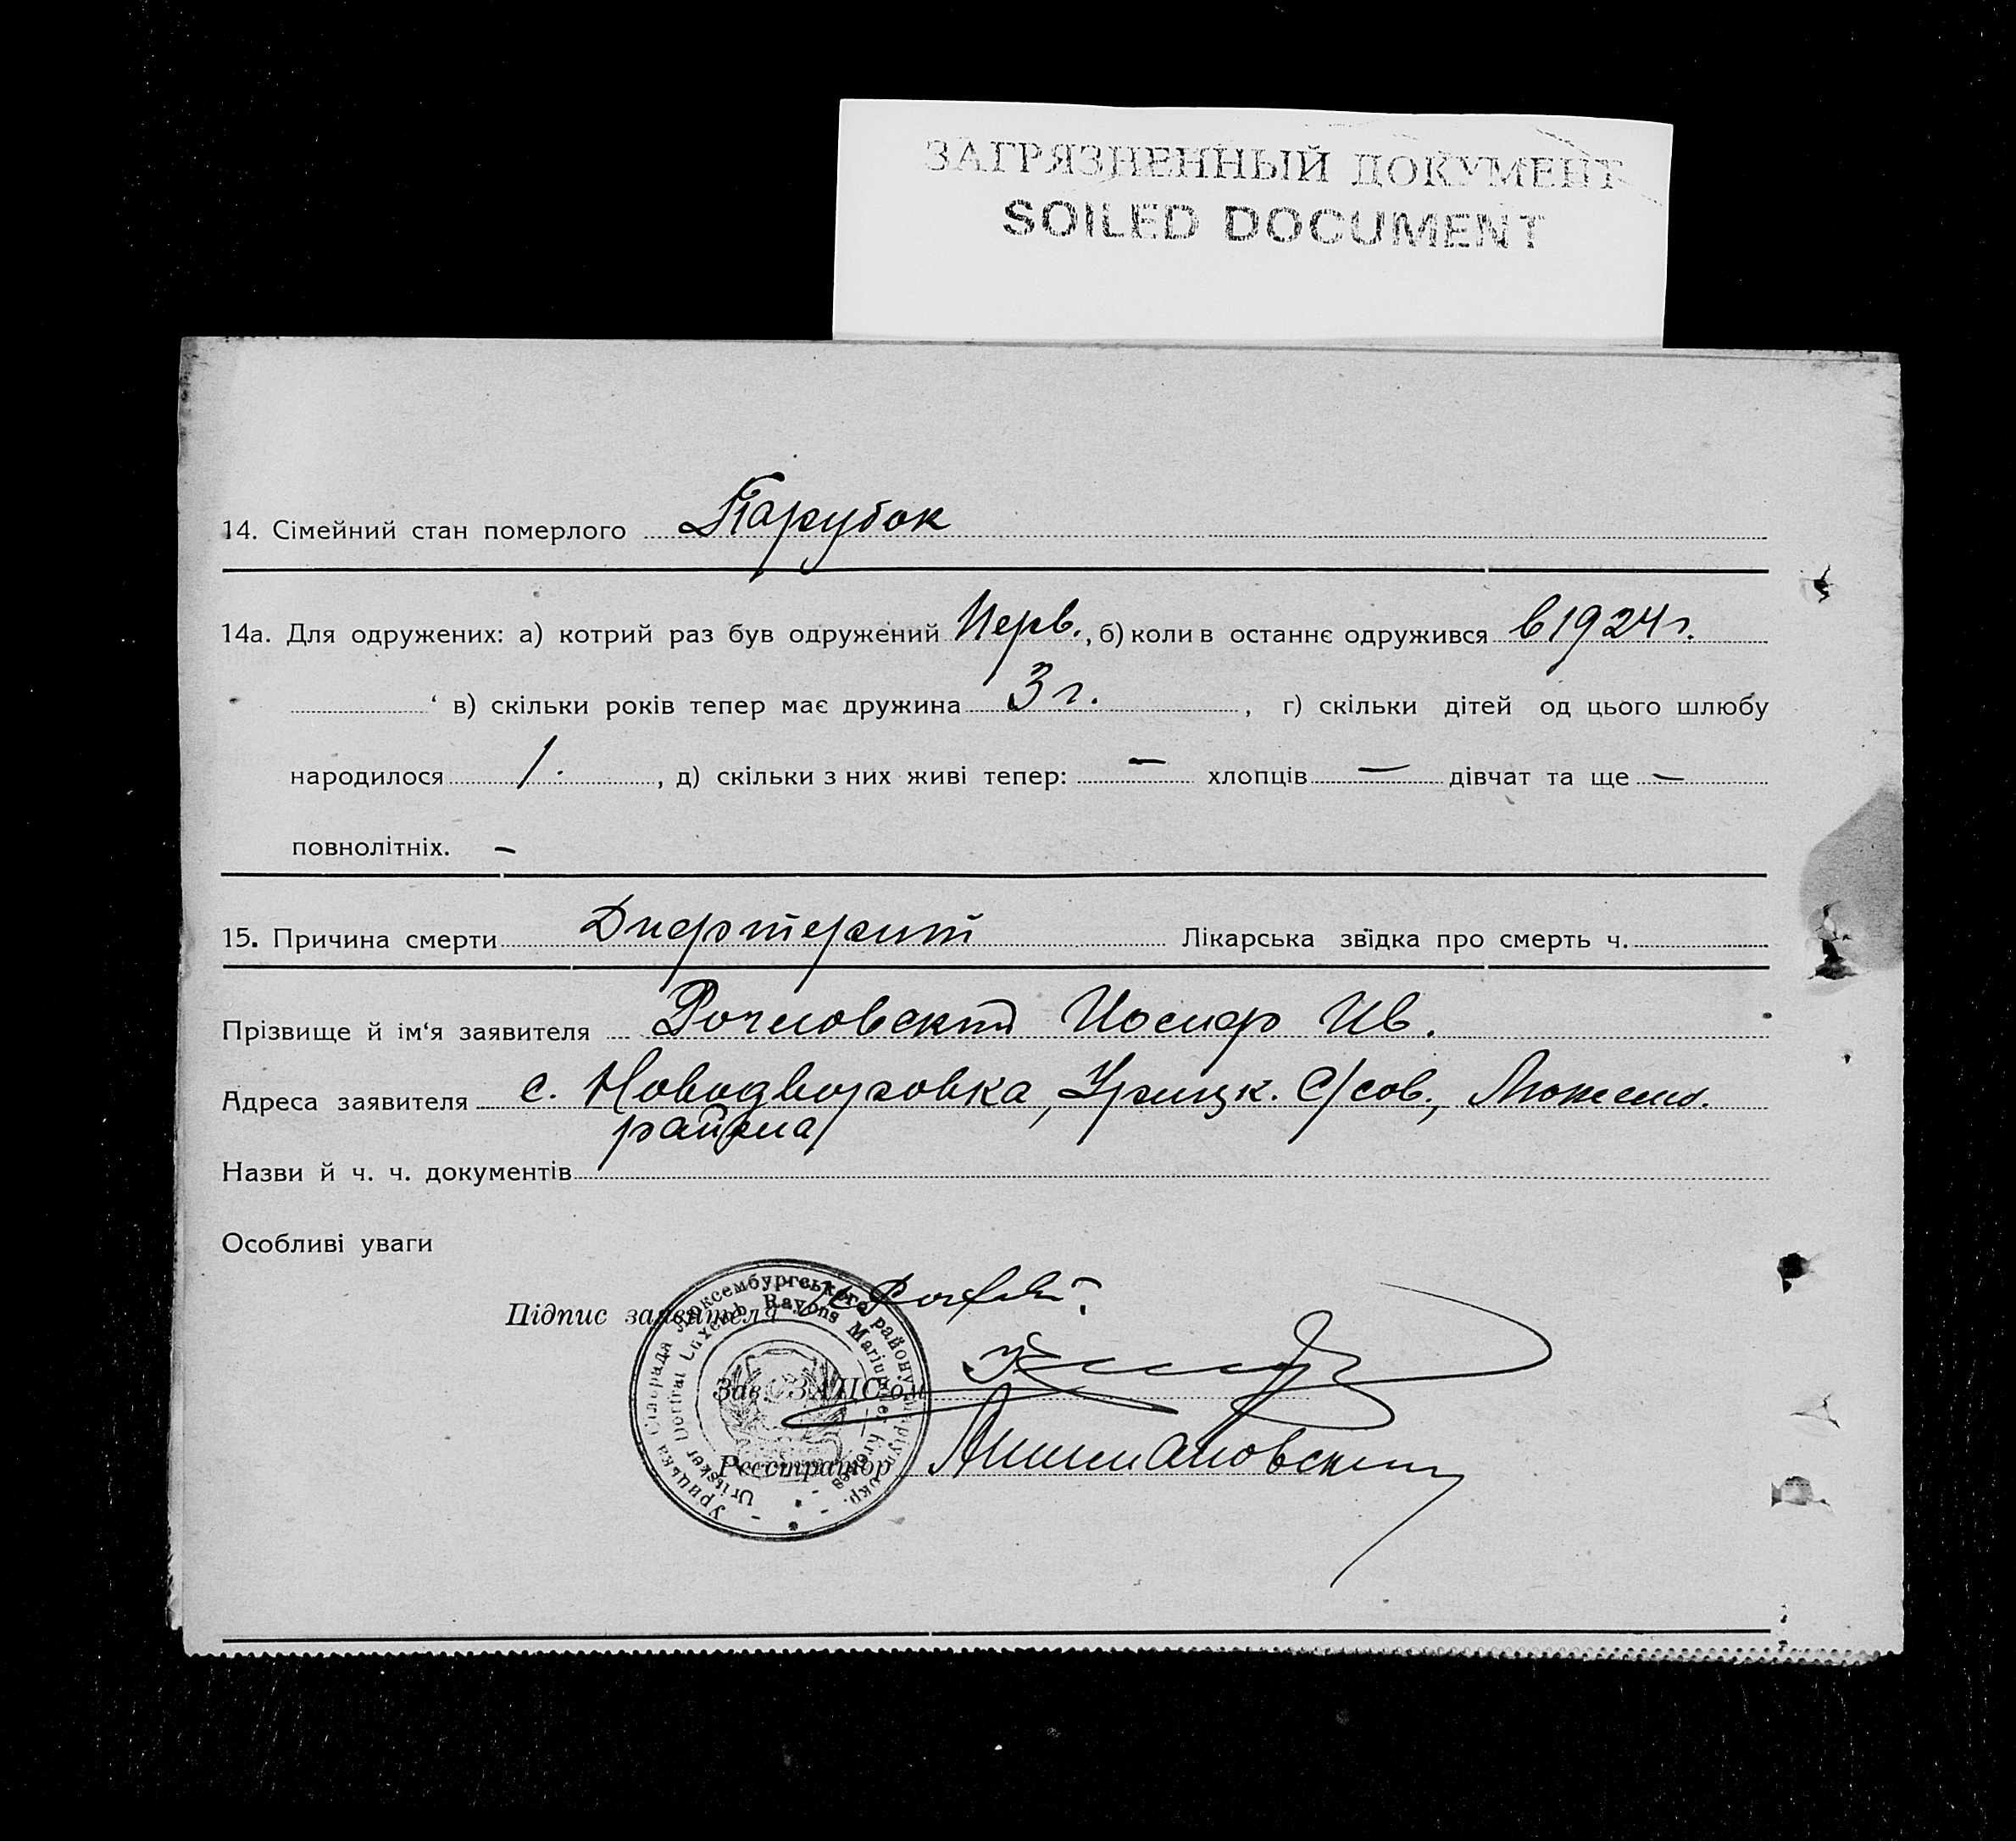 ЗАГРЯЗНЕННЫЙ ДОКУМЕНТ
SOILED DOCUMENT
14. Сімейний стан померлого Парубок
14а. Для одружених: а) котрий раз був одружений Перв., б) коли в останнє одружився в 1924 г.
в) скільки років тепер має дружина 3 г. , г) скільки дітей од цього шлюбу
народилося 1. , д) скільки з них живі тепер: — хлопців — дівчат та ще —
повнолітніх. —
15. Причина смерти Дифтерит Лікарська звідка про смерть ч.
Прізвище й ім‘я заявителя Иосиф Ив.
Адреса заявителя с. Новодворовка, Урицк. С/сов.,
района
Назви й ч. ч. документів
Особливі уваги
Підпис заявителя
Зав. ЗАПС'ом
Реєстратор
Урицька Сільрада Люксембургського району Маріуп. окр.
Uritsker Dorfrat Luxemb. Rayons Mariupoler Kreises